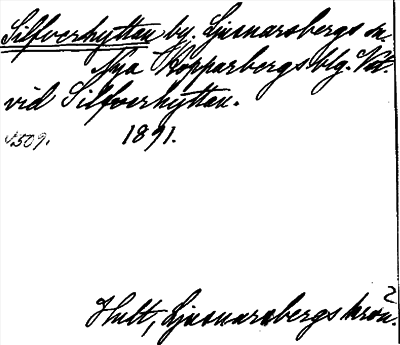 Silfverhyttan by. Ljusnarsbergs sn.
Nya Kopparbergs blg. Vstm.
vid Silfverhyttan.
s. 509. 1891.
Hult, Ljusnarsbergs krön.